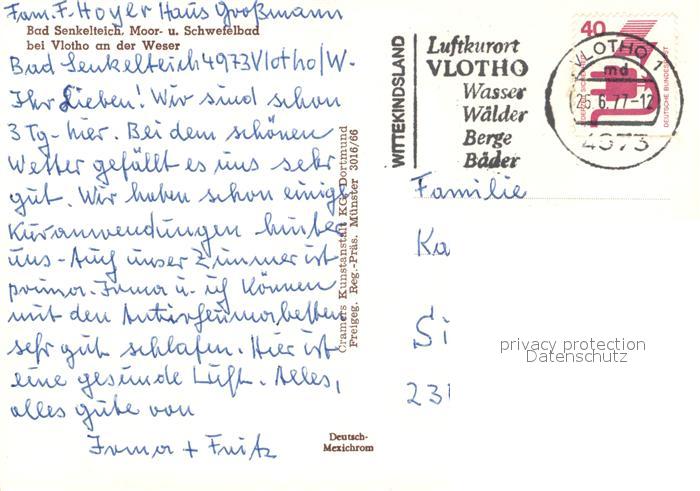 Fam. F. Hoyer Haus Großmann
Bad Senkelteich, Moor- u. Schwefelbad
bei Vlotho an der Weser
Bad Senkelteich 4973 Vlotho/W.
Ihr Lieben! Wir sind schon
3 Tg. hier. Bei dem schönen
Wetter gefällt es uns sehr
gut. Wir haben schon einige
Kuranwendungen hinter
uns - Auch unser Zimmer ist
prima. Irma u. ich können
mit den Antirheumabetten
sehr gut schlafen. Hier ist
eine gesunde Luft. Alles,
alles gute von
Irma + Fritz
Cramers Kunstanstalt KG, Dortmund
Freigeg. Reg.-Präs. Münster 3016/66
Deutsch-
Mexichrom
WITTEKINDSLAND
Luftkurort
VLOTHO
Wasser
Wälder
Berge
Bäder
40
DEUTSCHE BUNDESPOST
VLOTHO 1
md
25.6.77-12
4973
Familie
Ka
Si
231
privacy protection
Datenschutz